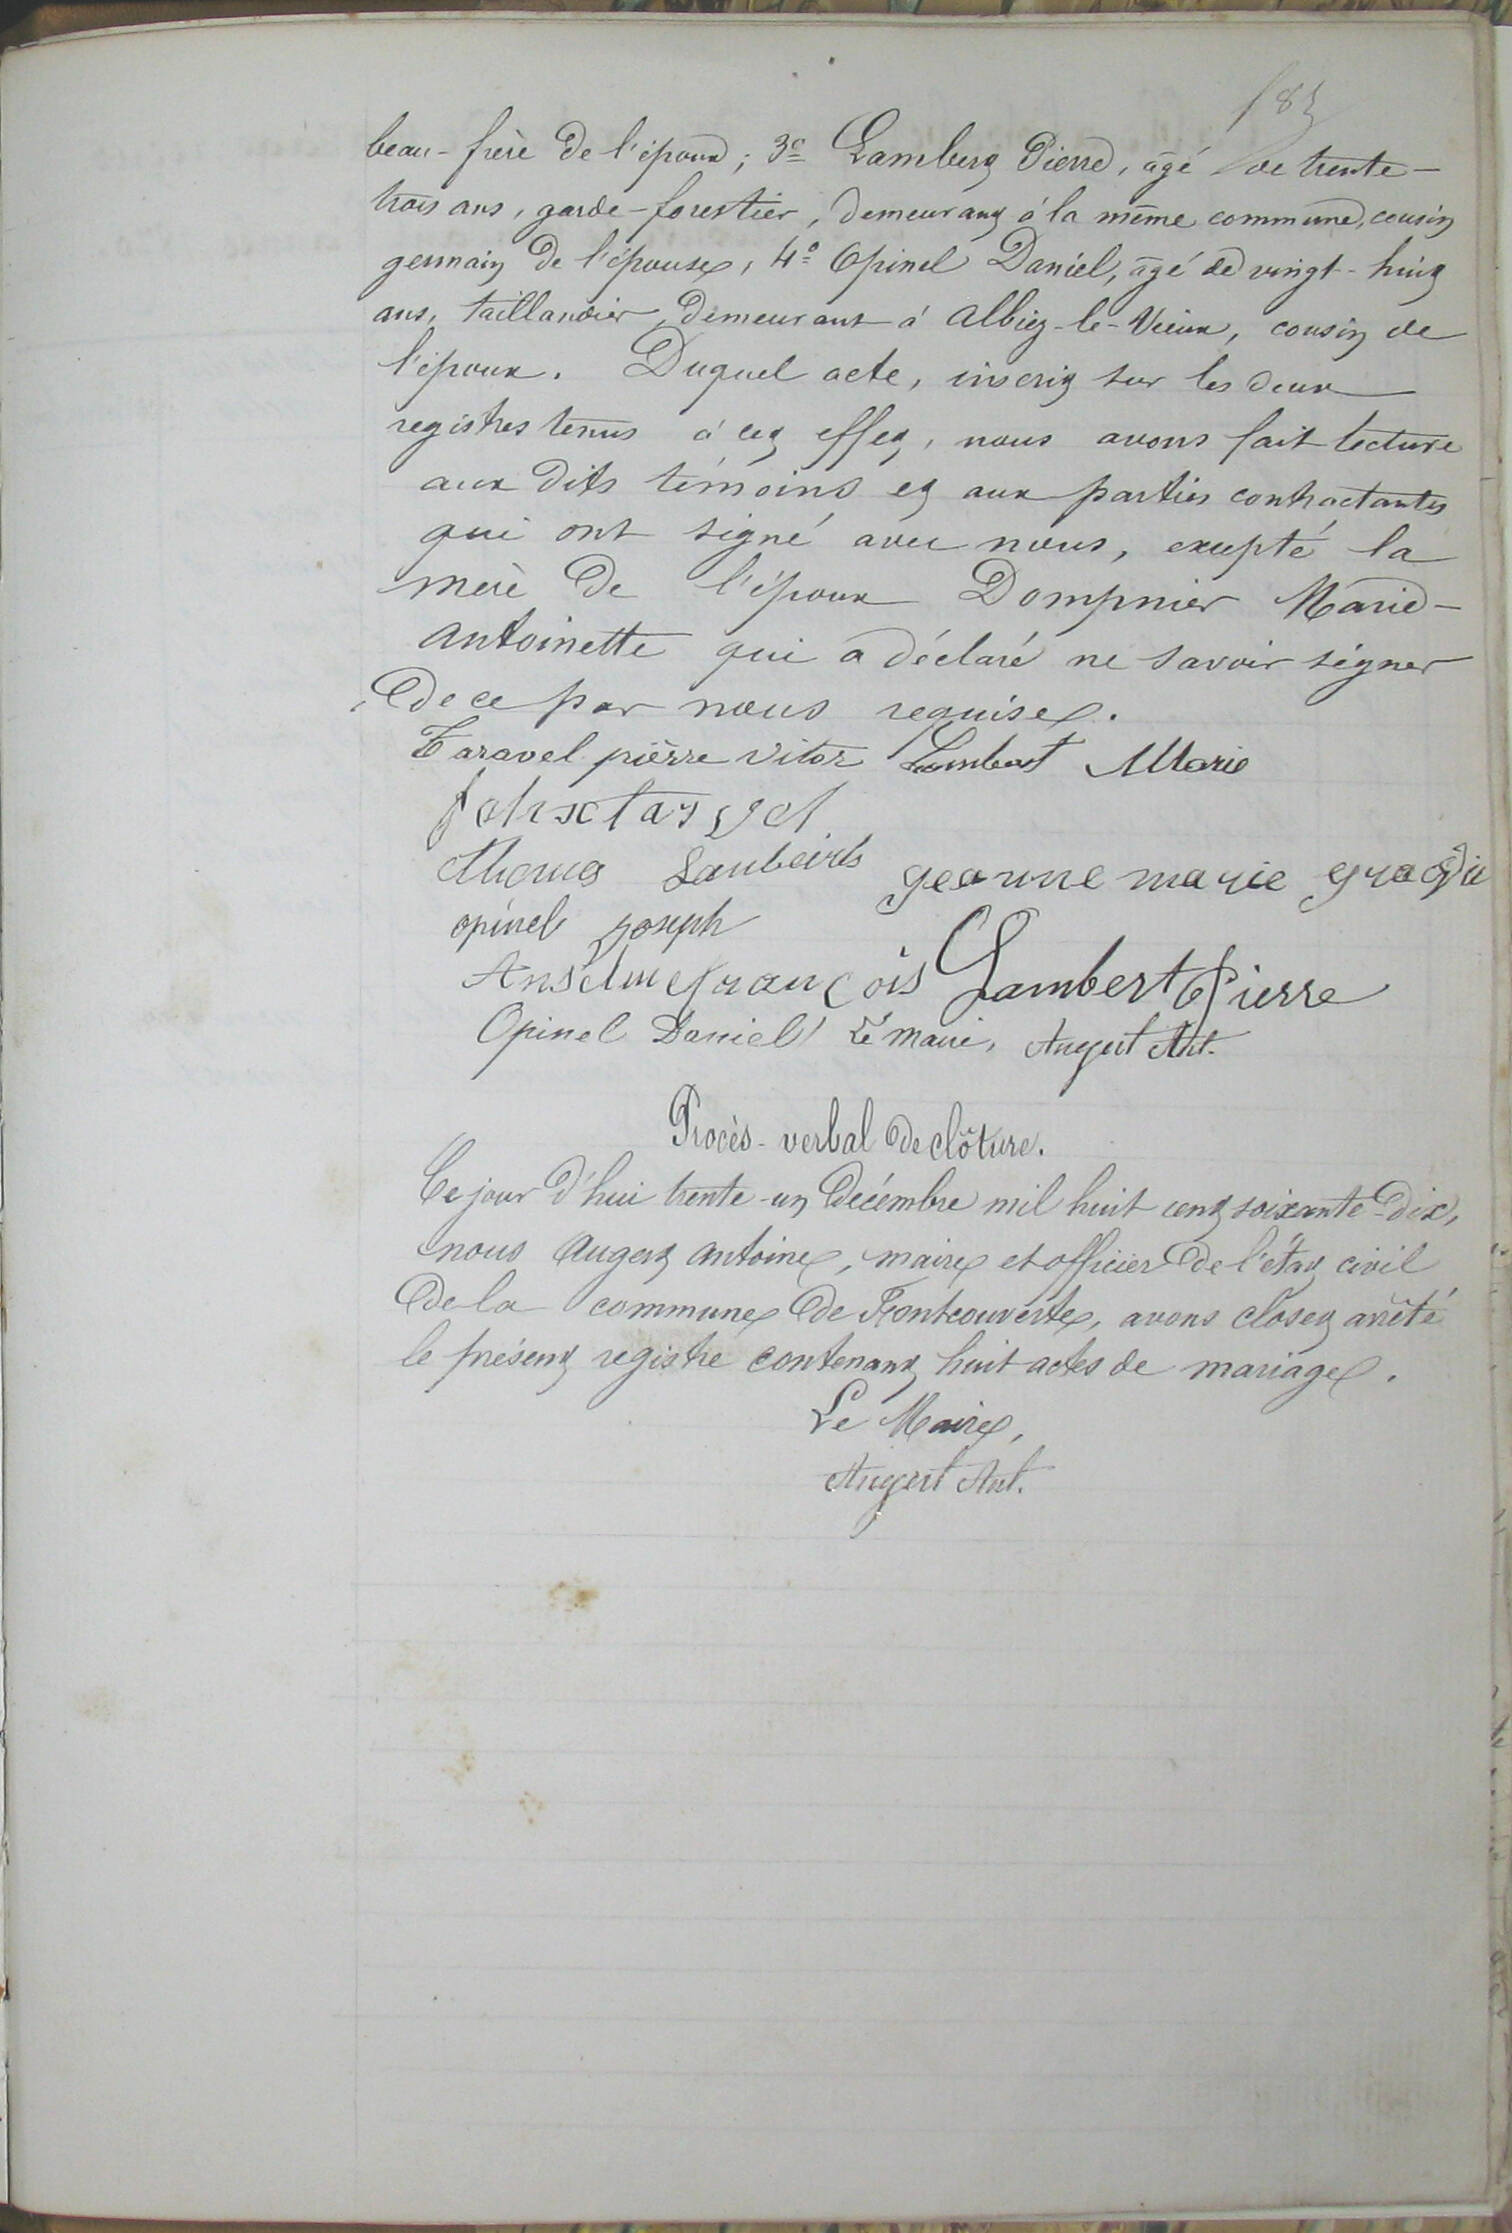 beau-frère de l'époux; 3º Lambert Pierre, âgé de trente-
trois ans, garde-forestier, demeurant à la même commune, cousin
germain de l'épouse, 4º Opinel Daniel, âgé de vingt-huit
ans, taillandier, demeurant à Albiez-le-Vieux, cousin de
l'époux. Duquel acte, inscrit sur les deux
registres tenus à cet effet, nous avons fait lecture
aux dits témoins et aux parties contractantes
qui ont signé avec nous, excepté la
mère de l'époux Dompnier Marie-
antoinette qui a déclaré ne savoir signer
de ce par nous requise.
Taravel pièrre vitor Lambert Marie
opinel joseph
geanne marie
Anselme françois Lambert Pierre
Opinel Daniel Le Maire, Augert Ant.
Procès-verbal de clôture.
Ce jour d'hui trente-un Décembre mil huit cent soixante-dix,
nous Augert antoine, maire et officier de l'état civil
de la commune de Fontcouverte, avons clos et arrêté
le présent registre contenant huit actes de mariage.
Le Maire,
Augert Ant.